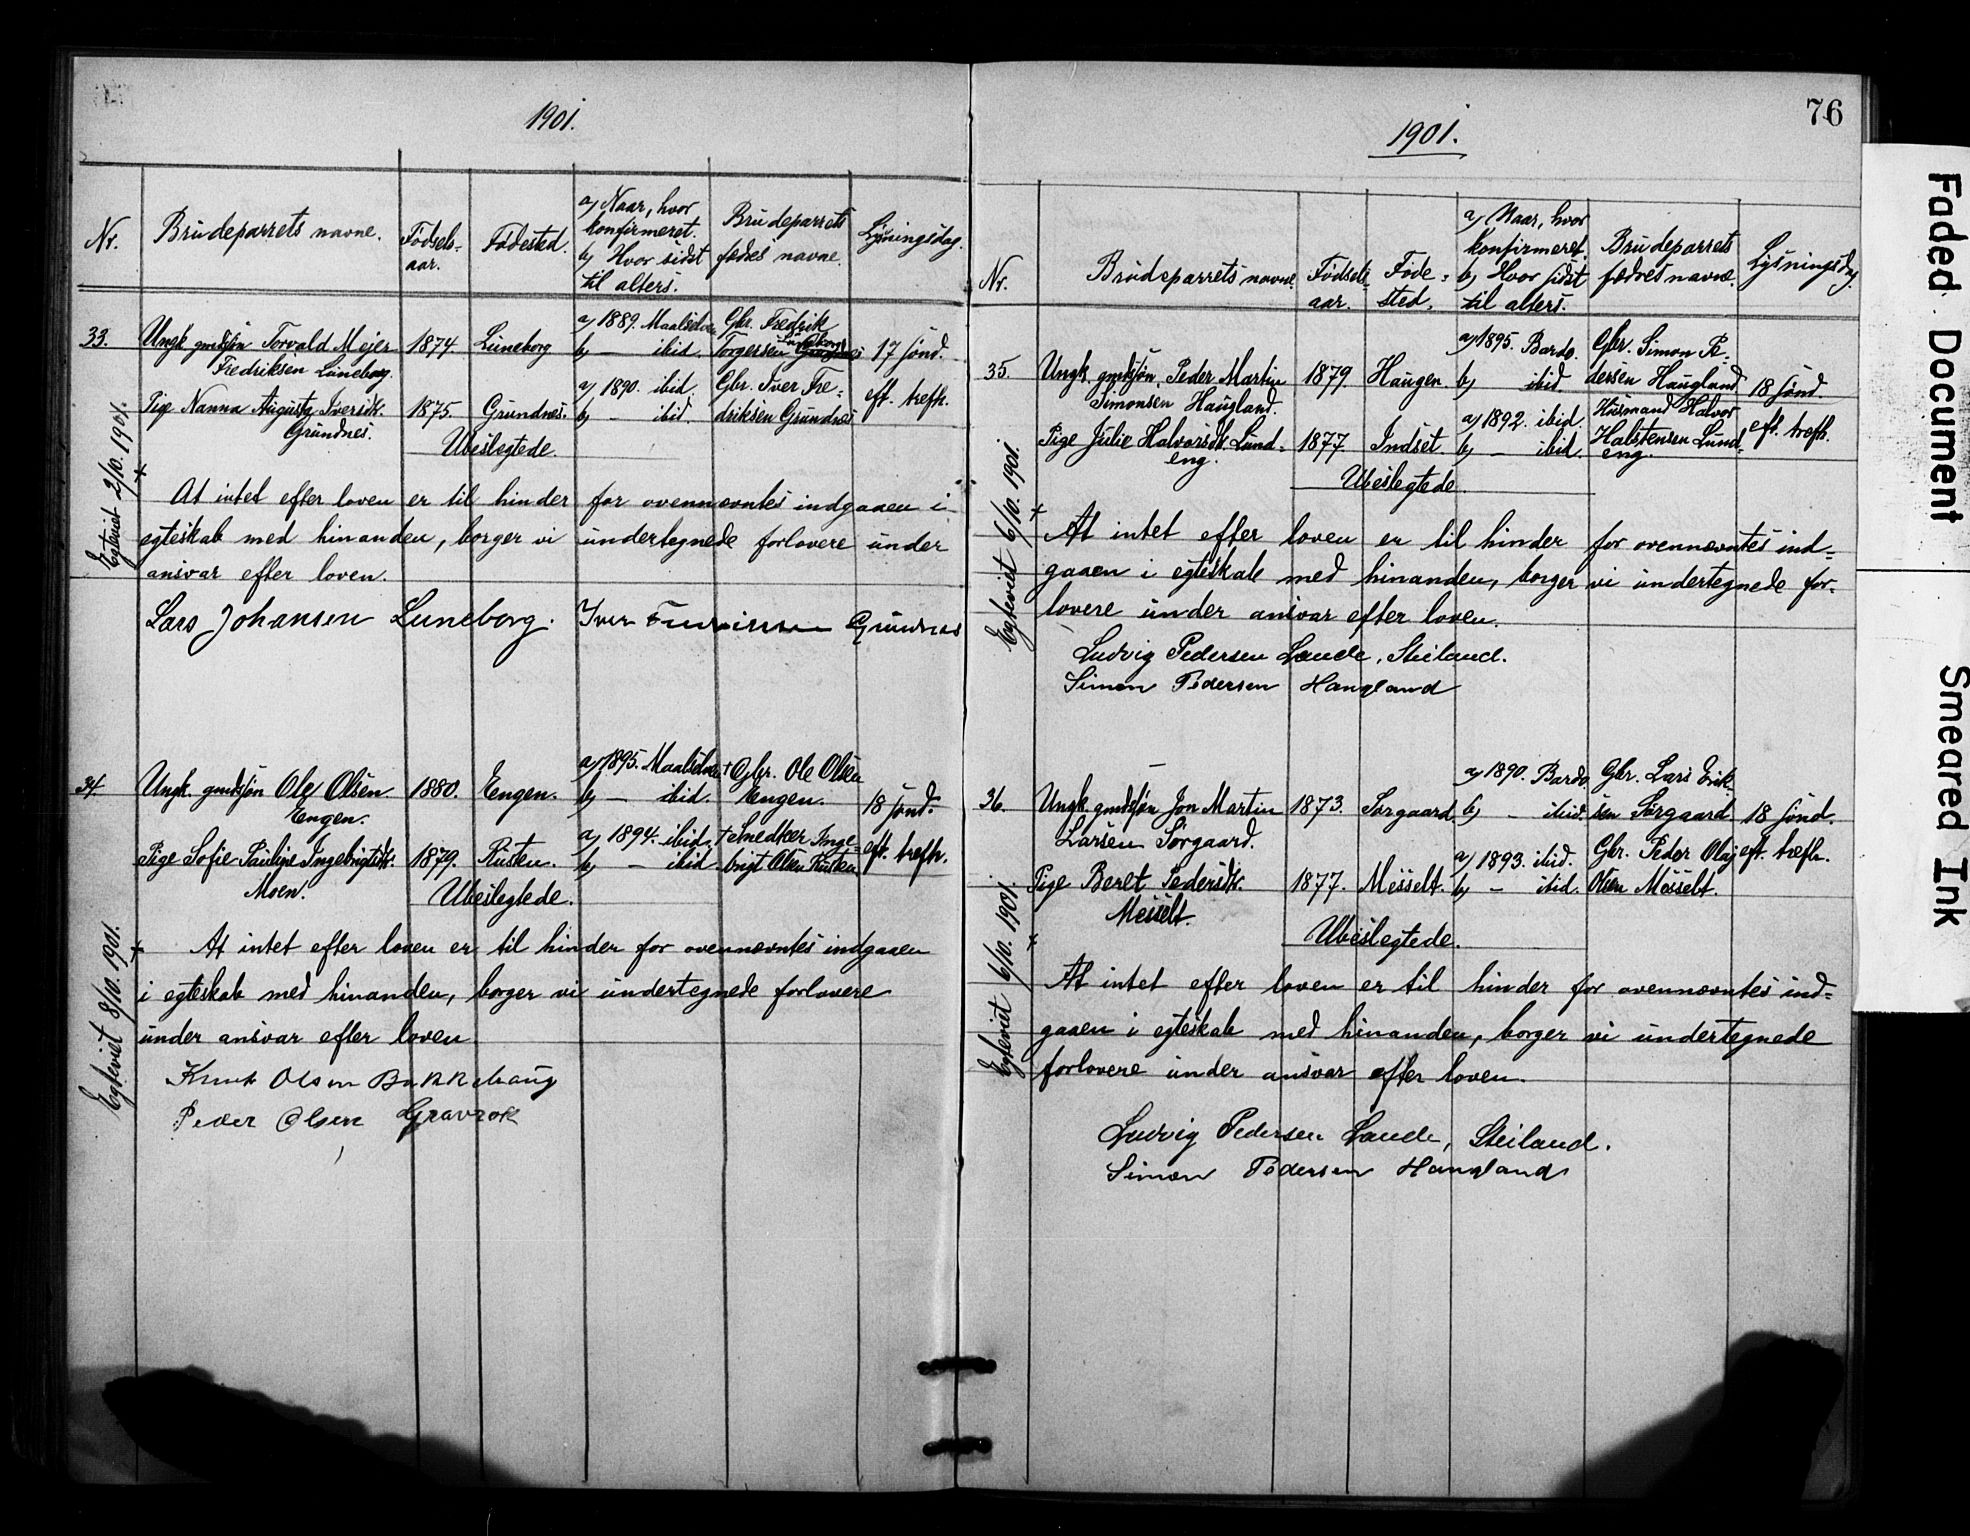 1901.
Nr. Brudeparrets navne. Fødsels-aar. Fødested. a) Naar, hvor konfirmeret. b) Hvor sidst til alters. Brudeparrets fædres navne. Lysningsdag.
33. Ungk. gmdsøn Torvald Mejer 1874. Luneborg a) 1889. Maalselven Gbr. Fredrik
Fredriksen Luneborg. b) — ibid. Torgersen Luneborg 17 sønd.
Pige Nanna Augusta Iversdtr. 1875. Grundnes. a) 1890. ibid. Gbr. Iver Fre- eft. trefh.
Grundnes. b) — ibid. driksen Grundnes
Ubeslegtede.
Egteviet 2/10. 1901. +
At intet efter loven er til hinder for ovennævntes indgaaen i
egteskab med hinanden, borger vi undertegnede forlovere under
ansvar efter loven.
Lars Johansen Luneborg. Iver Grundnes
34 Ungk. gmdsøn Ole Olsen 1880. Engen. a) 1895. Maalselven + Gbr. Ole Olsen
Engen. b) — ibid. Engen. 18 sønd.
Pige Sofie Pauline Ingebrigtsdtr. 1879. Rusten. a) 1894. ibid. + Snedker Inge- eft. trefh.
Moen. b) — ibid. brigt Olsen Rusten
Ubeslegtede.
Egteviet 8/10. 1901. +
At intet efter loven er til hinder for ovennævntes indgaaen
i egteskab med hinanden, borger vi undertegnede forlovere
under ansvar efter loven.
Knut Olsen Bakkehaug
Peder Olsen Gravrok
76
1901.
Nr. Brudeparrets navne. Fødsels aar. Føde-sted. a) Naar, hvor konfirmeret. b) Hvor sidst til alters. Brudeparrets fædres navne. Lysningsdag.
35. Ungk. gmdsøn, Peder Martin 1879. Haugen. a) 1895. Bardo. Gbr. Simon Pe-
Simonsen Haugland. b) ibid dersen Haugland 18 sønd.
Pige Julie Halvorsdtr. Lund- 1877. Indset. a) 1892. ibid. Husmand Halvor eft. trefh.
eng. b) — ibid. Halstensen Lund-
eng.
Ubeslegtede.
Egteviet 6/10. 1901. +
At intet efter loven er til hinder for ovennævntes ind-
gaaen i egteskab med hinanden, borger vi undertegnede for-
lovere under ansvar efter loven.
Ludvig Pedersen Lande, Steiland.
Simon Pedersen Haugland
36. Ungk. gmdsøn Jon Martin 1873. Sørgaard. a) 1890. Bardo. Gbr. Lars Erik-
Larsen Sørgaard. b) — ibid. sen Sørgaard 18 sønd.
Pige Beret Pedersdtr. 1877. Messelt. a) 1893. ibid. Gbr. Peder Olaj eft. trefh.
Messelt. b) — ibid. Olsen Messelt.
Ubeslegtede.
Egteviet 6/10. 1901. x
At intet efter loven er til hinder for ovennævntes ind-
gaaen i egteskab med hinanden, borger vi undertegnede
forlovere under ansvar efter loven.
Ludvig Pedersen Lande, Steiland.
Simon Pedersen Haugland
Faded Document
Smeared Ink